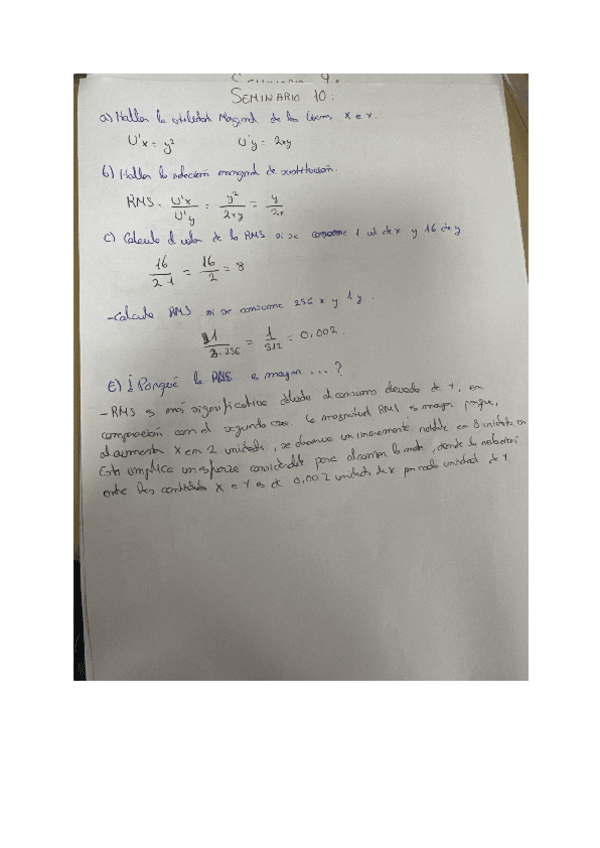 SEMINARIO 10.
a) Hallar la utilidad Marginal de los bienes X e Y.
U'x = y² U'y = 2xy
b) Hallar la relación marginal de sustitución.
RMS. U'x / U'y = y² / 2xy = y / 2x
c) Calcule el valor de la RMS si se consume 1 ud de x y 16 de y
16 / 2·1 = 16 / 2 = 8
-Calcule RMS si se consume 256 x y 1 y.
1 / 2·256 = 1 / 512 = 0,002.
E) ¿Porqué la RMS es mayor ...?
- RMS es más significativa debido al consumo elevado de Y, en
comparación con el segundo caso. La magnitud RMS es mayor porque,
al aumentar X em 2 unidades, se observa un incremento notable en 8 unidades en
Esto implica un esfuerzo considerable para alcanzar la meta, donde la relación
entre las cantidades X e Y es de 0,002 unidades de x por cada unidad de Y.